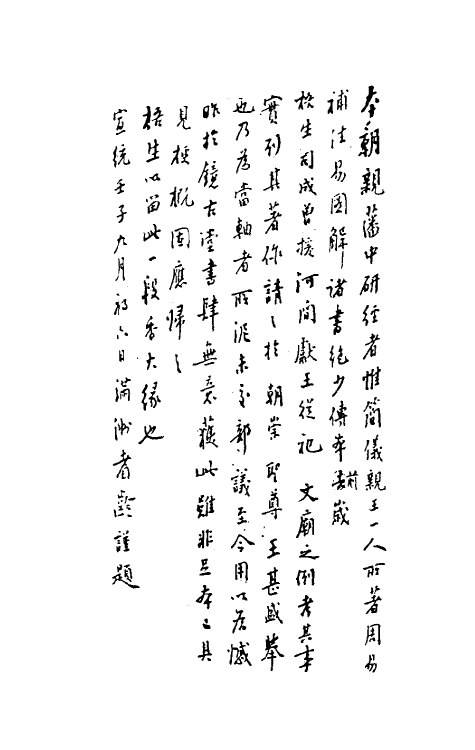 本朝親藩中研經者惟簡儀親王一人所著周易
補注易圖解諸書絕少傳本前歲
梧生司成曾援河間獻王從祀 文廟之例考其事
實列其著作請之於 朝崇 聖尊 王甚盛舉
也乃為當軸者所泥未交部議至今用以為憾
昨於鏡古堂書肆無意獲此雖非足本已具
見梗概固應歸之
梧生以留此一段香火緣也
宣統壬子九月初六日滿洲耆齡謹題